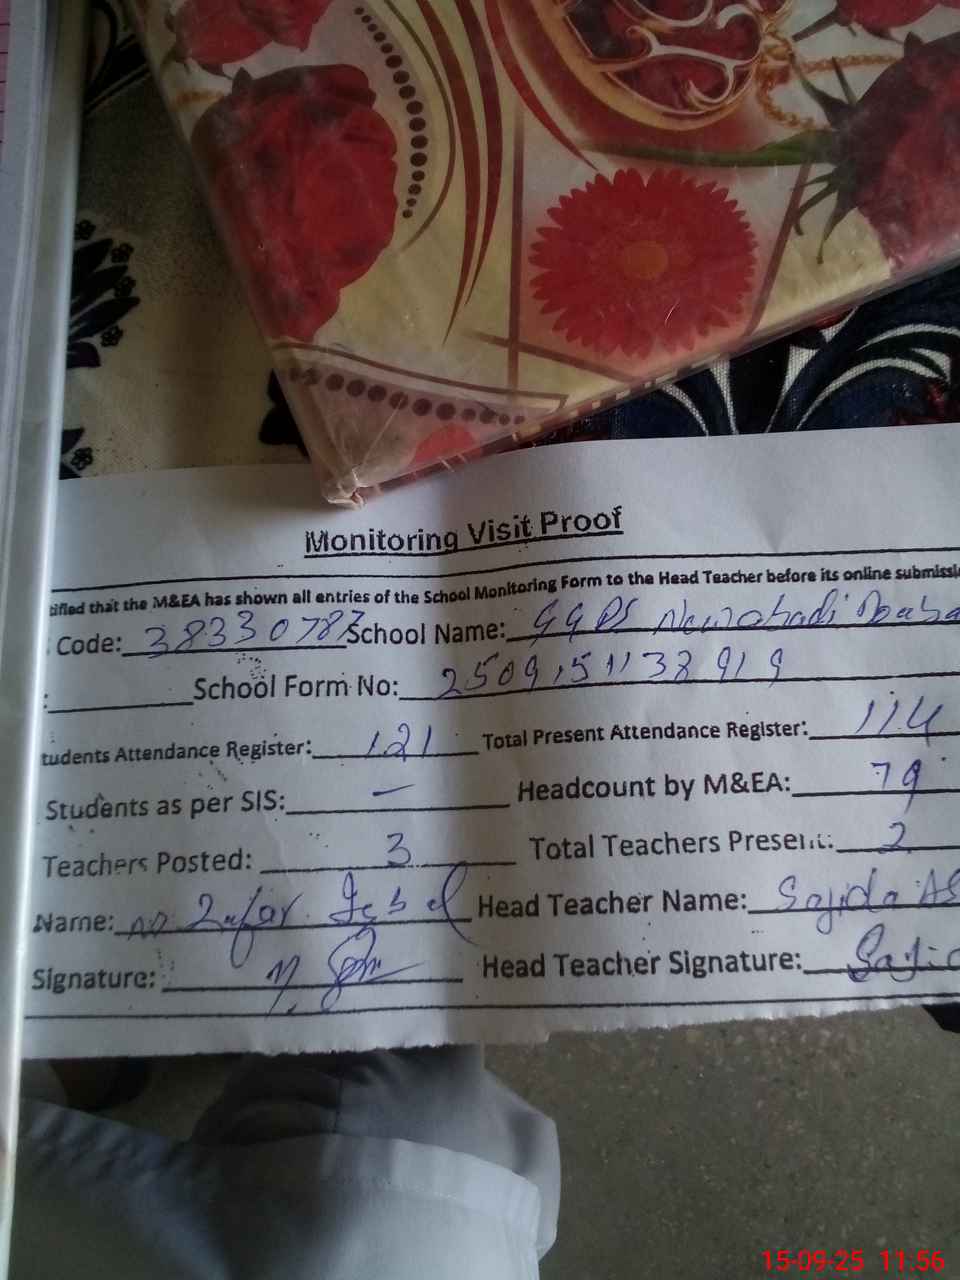 Monitoring Visit Proof
tified that the M&EA has shown all entries of the School Monitoring Form to the Head Teacher before its online submissi
Code: 38330787 School Name: GGPS Nawabadi
: School Form No: 2509151138919
tudents Attendance Register: 121 Total Present Attendance Register: 114
Students as per SIS: — Headcount by M&EA: 79
Teachers Posted: 3 Total Teachers Present: 2
Name: M. Zafar Iqbal Head Teacher Name: Sajida As
Signature: Head Teacher Signature: Saji
15-09-25 11:56